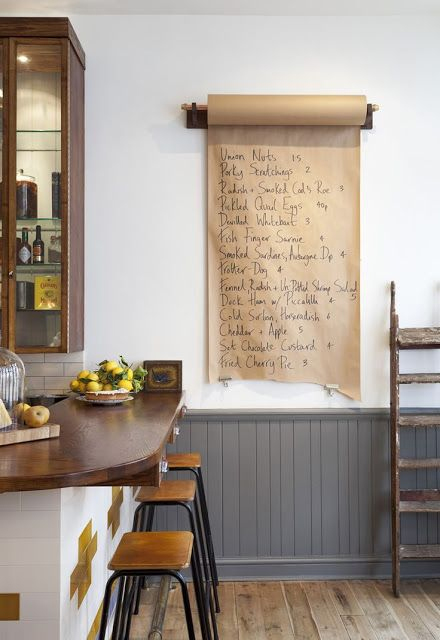 Union Nuts 1.5
Porky Scratchings 2
Radish + Smoked Cod's Roe 3
Pickled Quail Eggs 40p
Devilled Whitebait 3
Fish Finger Sarnie 4
Smoked Sardines, Aubergine Dip 4
Trotter-Dog 4
Fennel, Radish + Un-Potted Shrimp Salad 5
Duck Ham w/ Piccalilli 4
Cold Sirloin, Horseradish 6
Cheddar + Apple 5
Set Chocolate Custard 4
Fried Cherry Pie 3